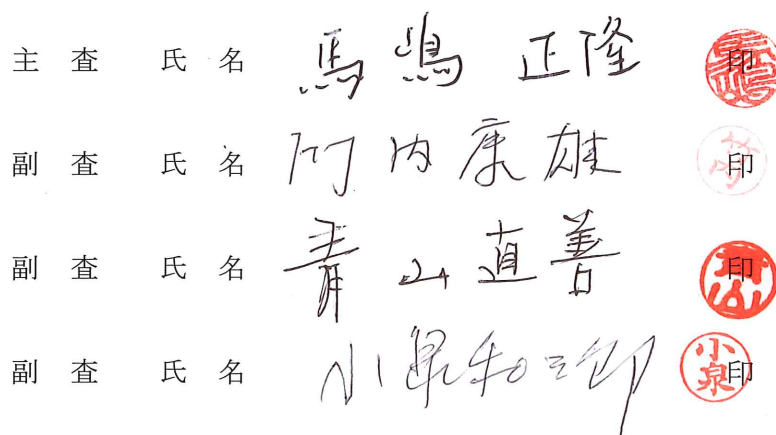 主 査 氏 名 馬嶋 正隆 印
副 査 氏 名 竹内康雄 印
副 査 氏 名 青山直善 印
副 査 氏 名 小泉和三郎 小泉 印